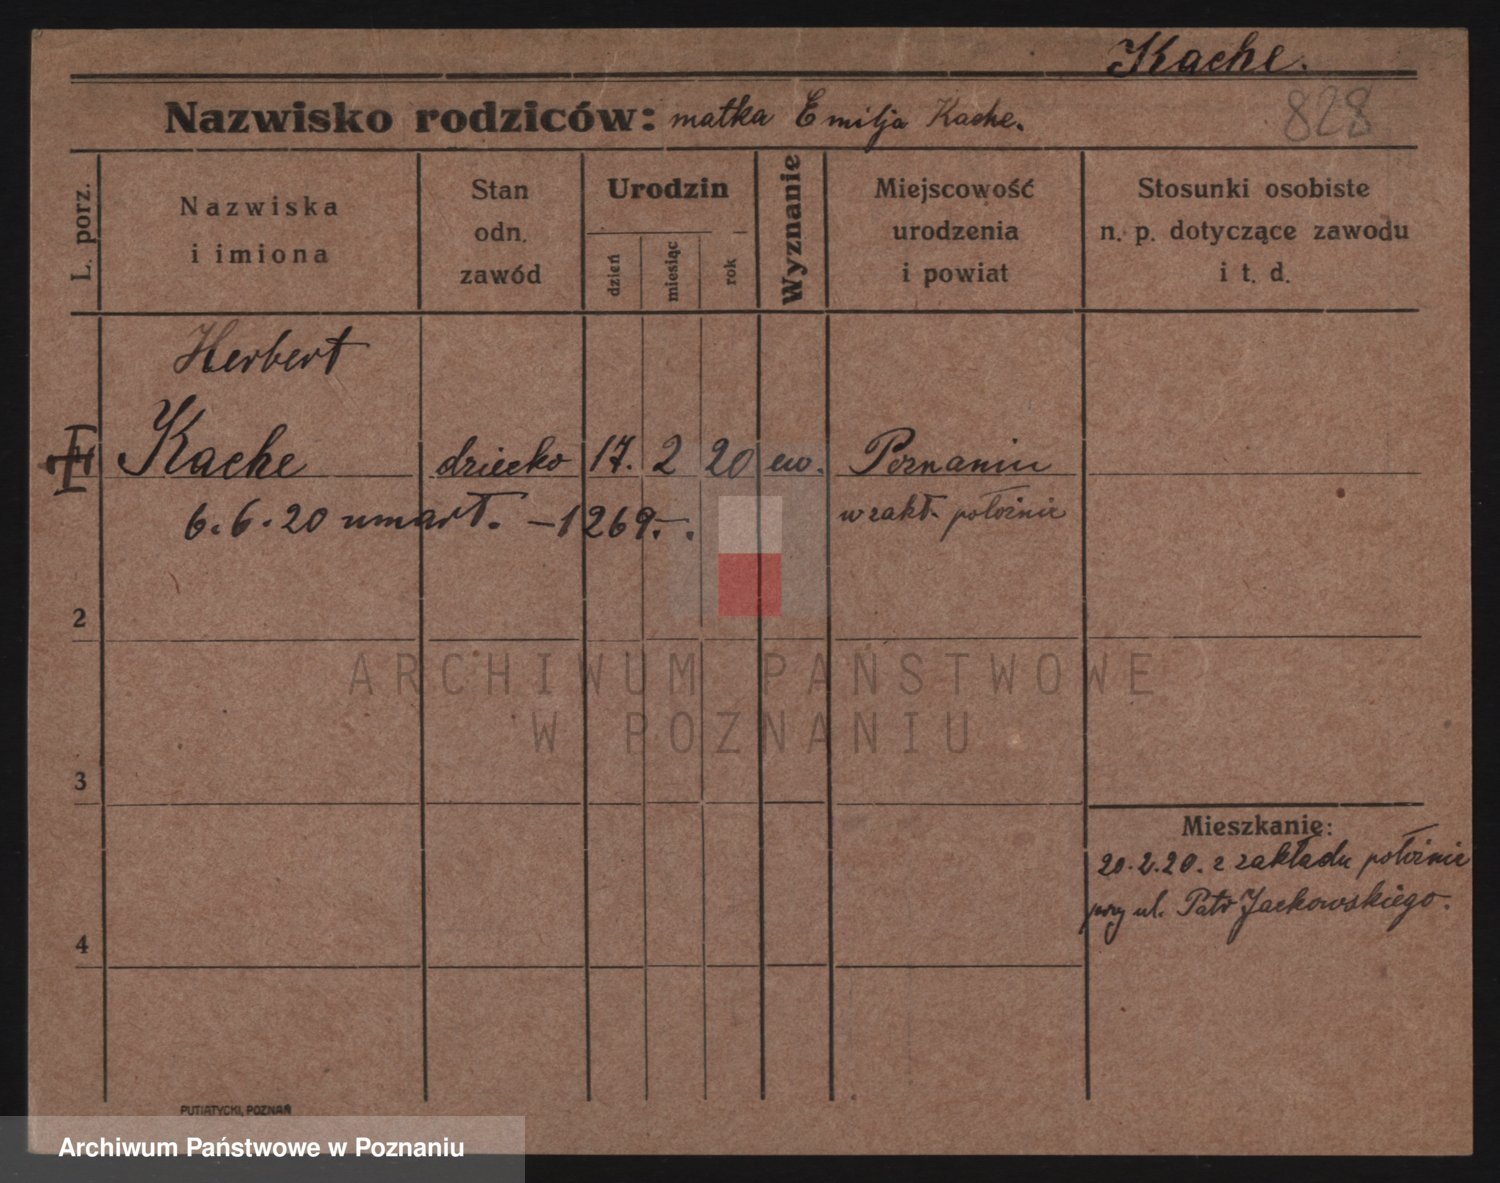 Kache.
Nazwisko rodziców: matka Emilja Kache.
828
L. porz.
Nazwiska
i imiona
Stan
odn.
zawód
Urodzin
dzień
miesiąc
rok
Wyznanie
Miejscowość
urodzenia
i powiat
Stosunki osobiste
n. p. dotyczące zawodu
i t. d.
Herbert
Kache dziecko 17. 2 20 ew. Poznaniu
6.6.20 umarł. – 1269.–. w zakł. położnic
2
3
4
Mieszkanie:
20.2.20. z zakładu położnic
przy ul. Patr Jackowskiego.
PUTIATYCKI, POZNAŃ
ARCHIWUM PAŃSTWOWE
W POZNANIU
Archiwum Państwowe w Poznaniu